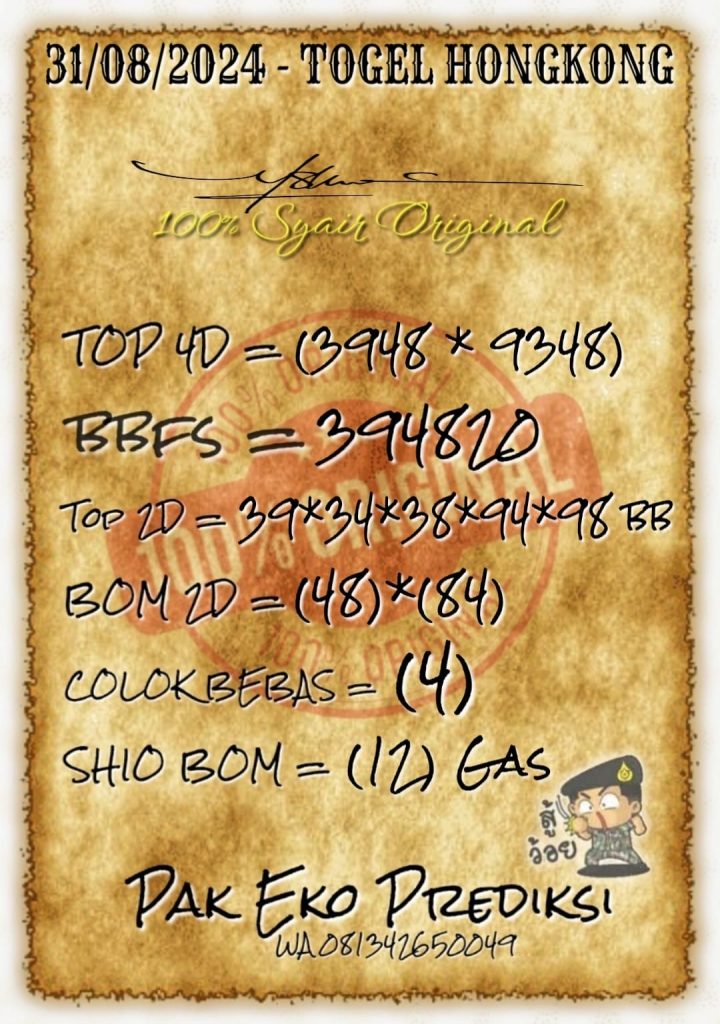 31/08/2024 - TOGEL HONGKONG
100% Syair Original
TOP 4D = (3948 * 9348)
BBFS = 394820
100% ORIGINAL
TOP 2D = 39*34*38*94*98 BB
100% ORIGINAL
BOM 2D = (48)*(84)
100% ORIGINAL
COLOKBEBAS = (4)
SHIO BOM = (12) GAS
สู้
ว้อย
PAK EKO PREDIKSI
WA.081342650049